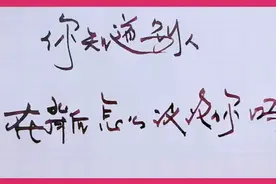 你知道别人
在背后怎么议论你吗